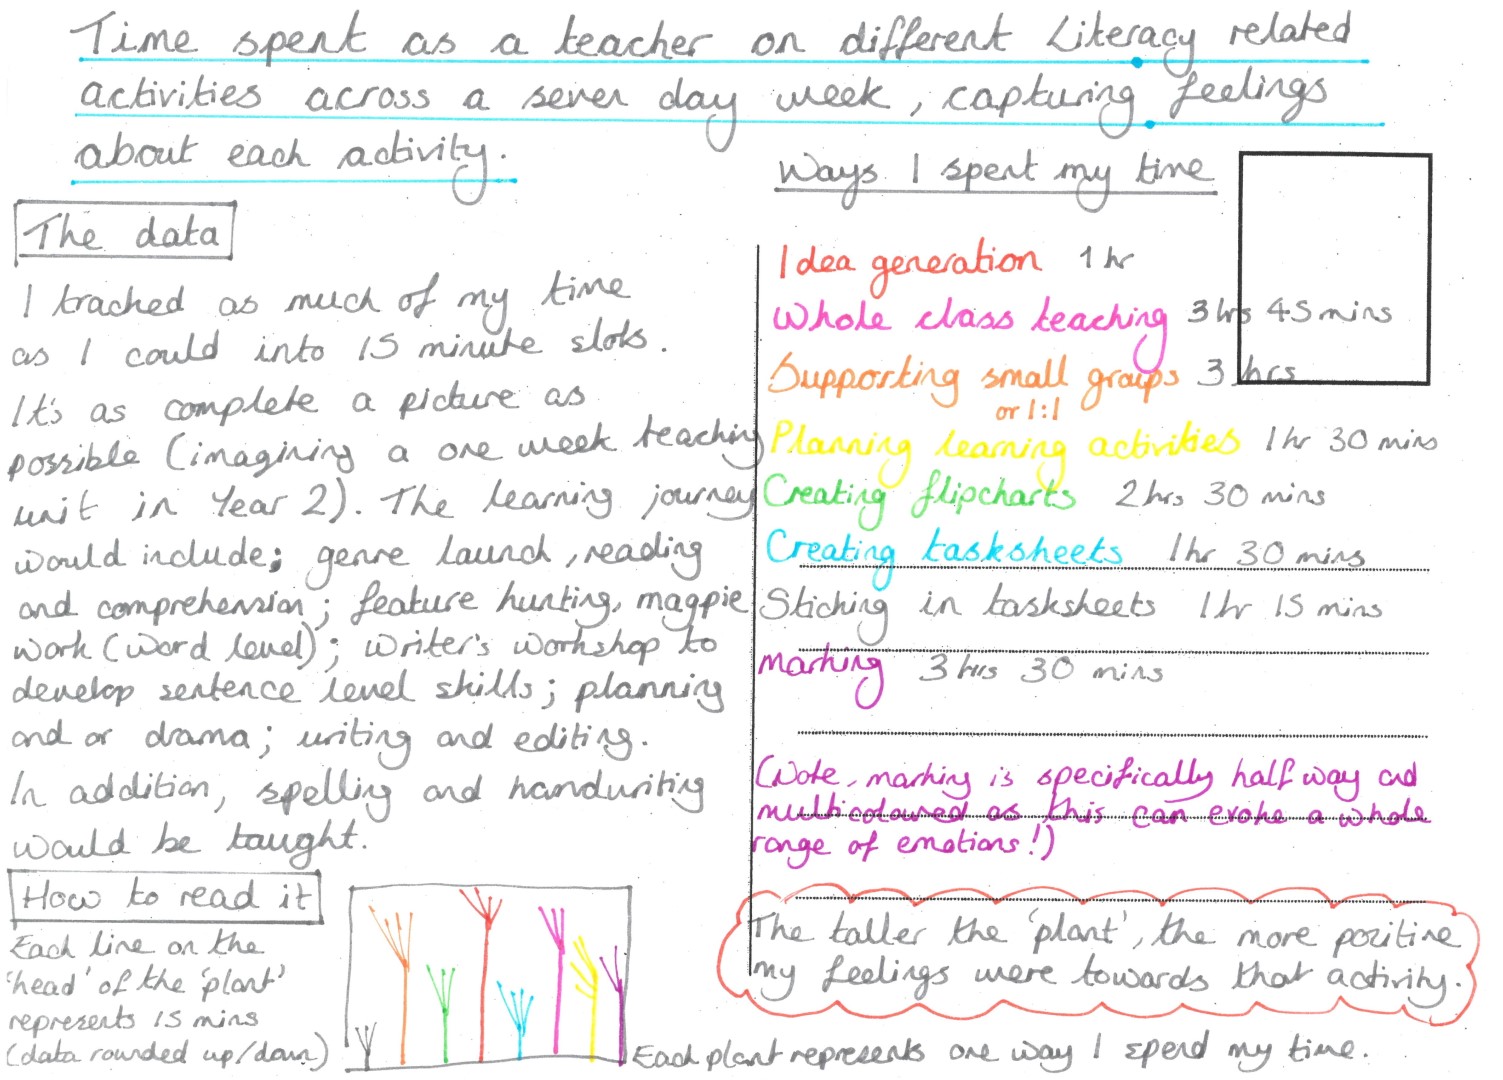 Time spent as a teacher on different Literacy related
activities across a seven day week, capturing feelings
about each activity.
The data
I tracked as much of my time
as I could into 15 minute slots.
It's as complete a picture as
possible (imagining a one week teaching
unit in Year 2). The learning journey
would include; genre launch, reading
and comprehension; feature hunting, magpie
work (word level); writer's workshop to
develop sentence level skills; planning
and or drama; writing and editing.
In addition, spelling and handwriting
would be taught.
How to read it
Each line on the
'head' of the 'plant'
represents 15 mins
(data rounded up/down)
Ways I spent my time
Idea generation 1 hr
Whole class teaching 3 hrs 45 mins
Supporting small groups 3 hrs
or 1:1
Planning learning activities 1 hr 30 mins
Creating flipcharts 2 hrs 30 mins
Creating tasksheets 1 hr 30 mins
Sticking in tasksheets 1 hr 15 mins
marking 3 hrs 30 mins
(Note, marking is specifically half way and
multicoloured as this can evoke a whole
range of emotions!)
The taller the 'plant', the more positive
my feelings were towards that activity.
Each plant represents one way I spend my time.